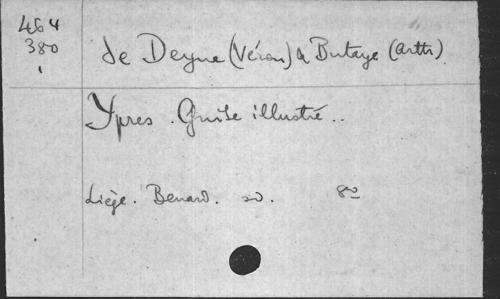 464
380
de Deyne (Véron) & Butaye (Arth)
Ypres. Guide illustré..
Liège. Benard. sd. 8°